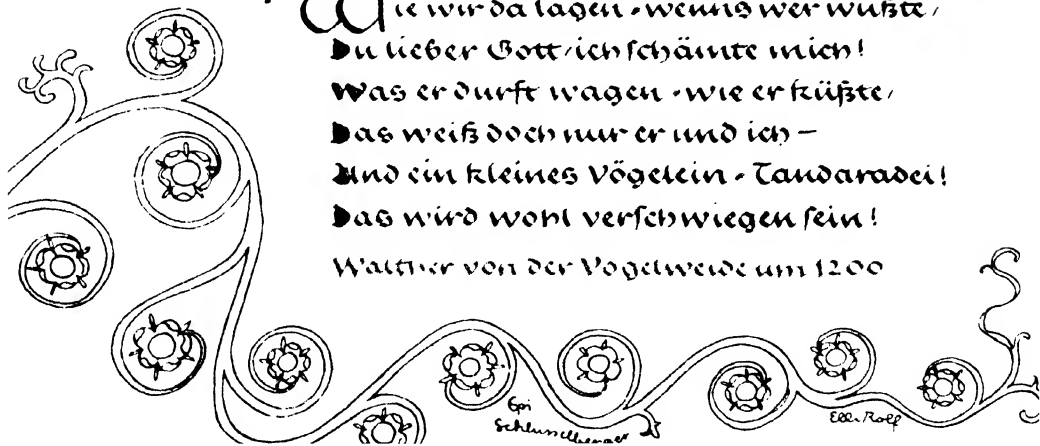 Wie wir da lagen · wenns wer wußte,
Du lieber Gott, ich schämte mich!
Was er durft wagen · wie er küßte,
Das weiß doch nur er und ich –
Und ein kleines Vögelein · Tandaradei!
Das wird wohl verschwiegen sein!
Walther von der Vogelweide um 1200
Elli Rolf